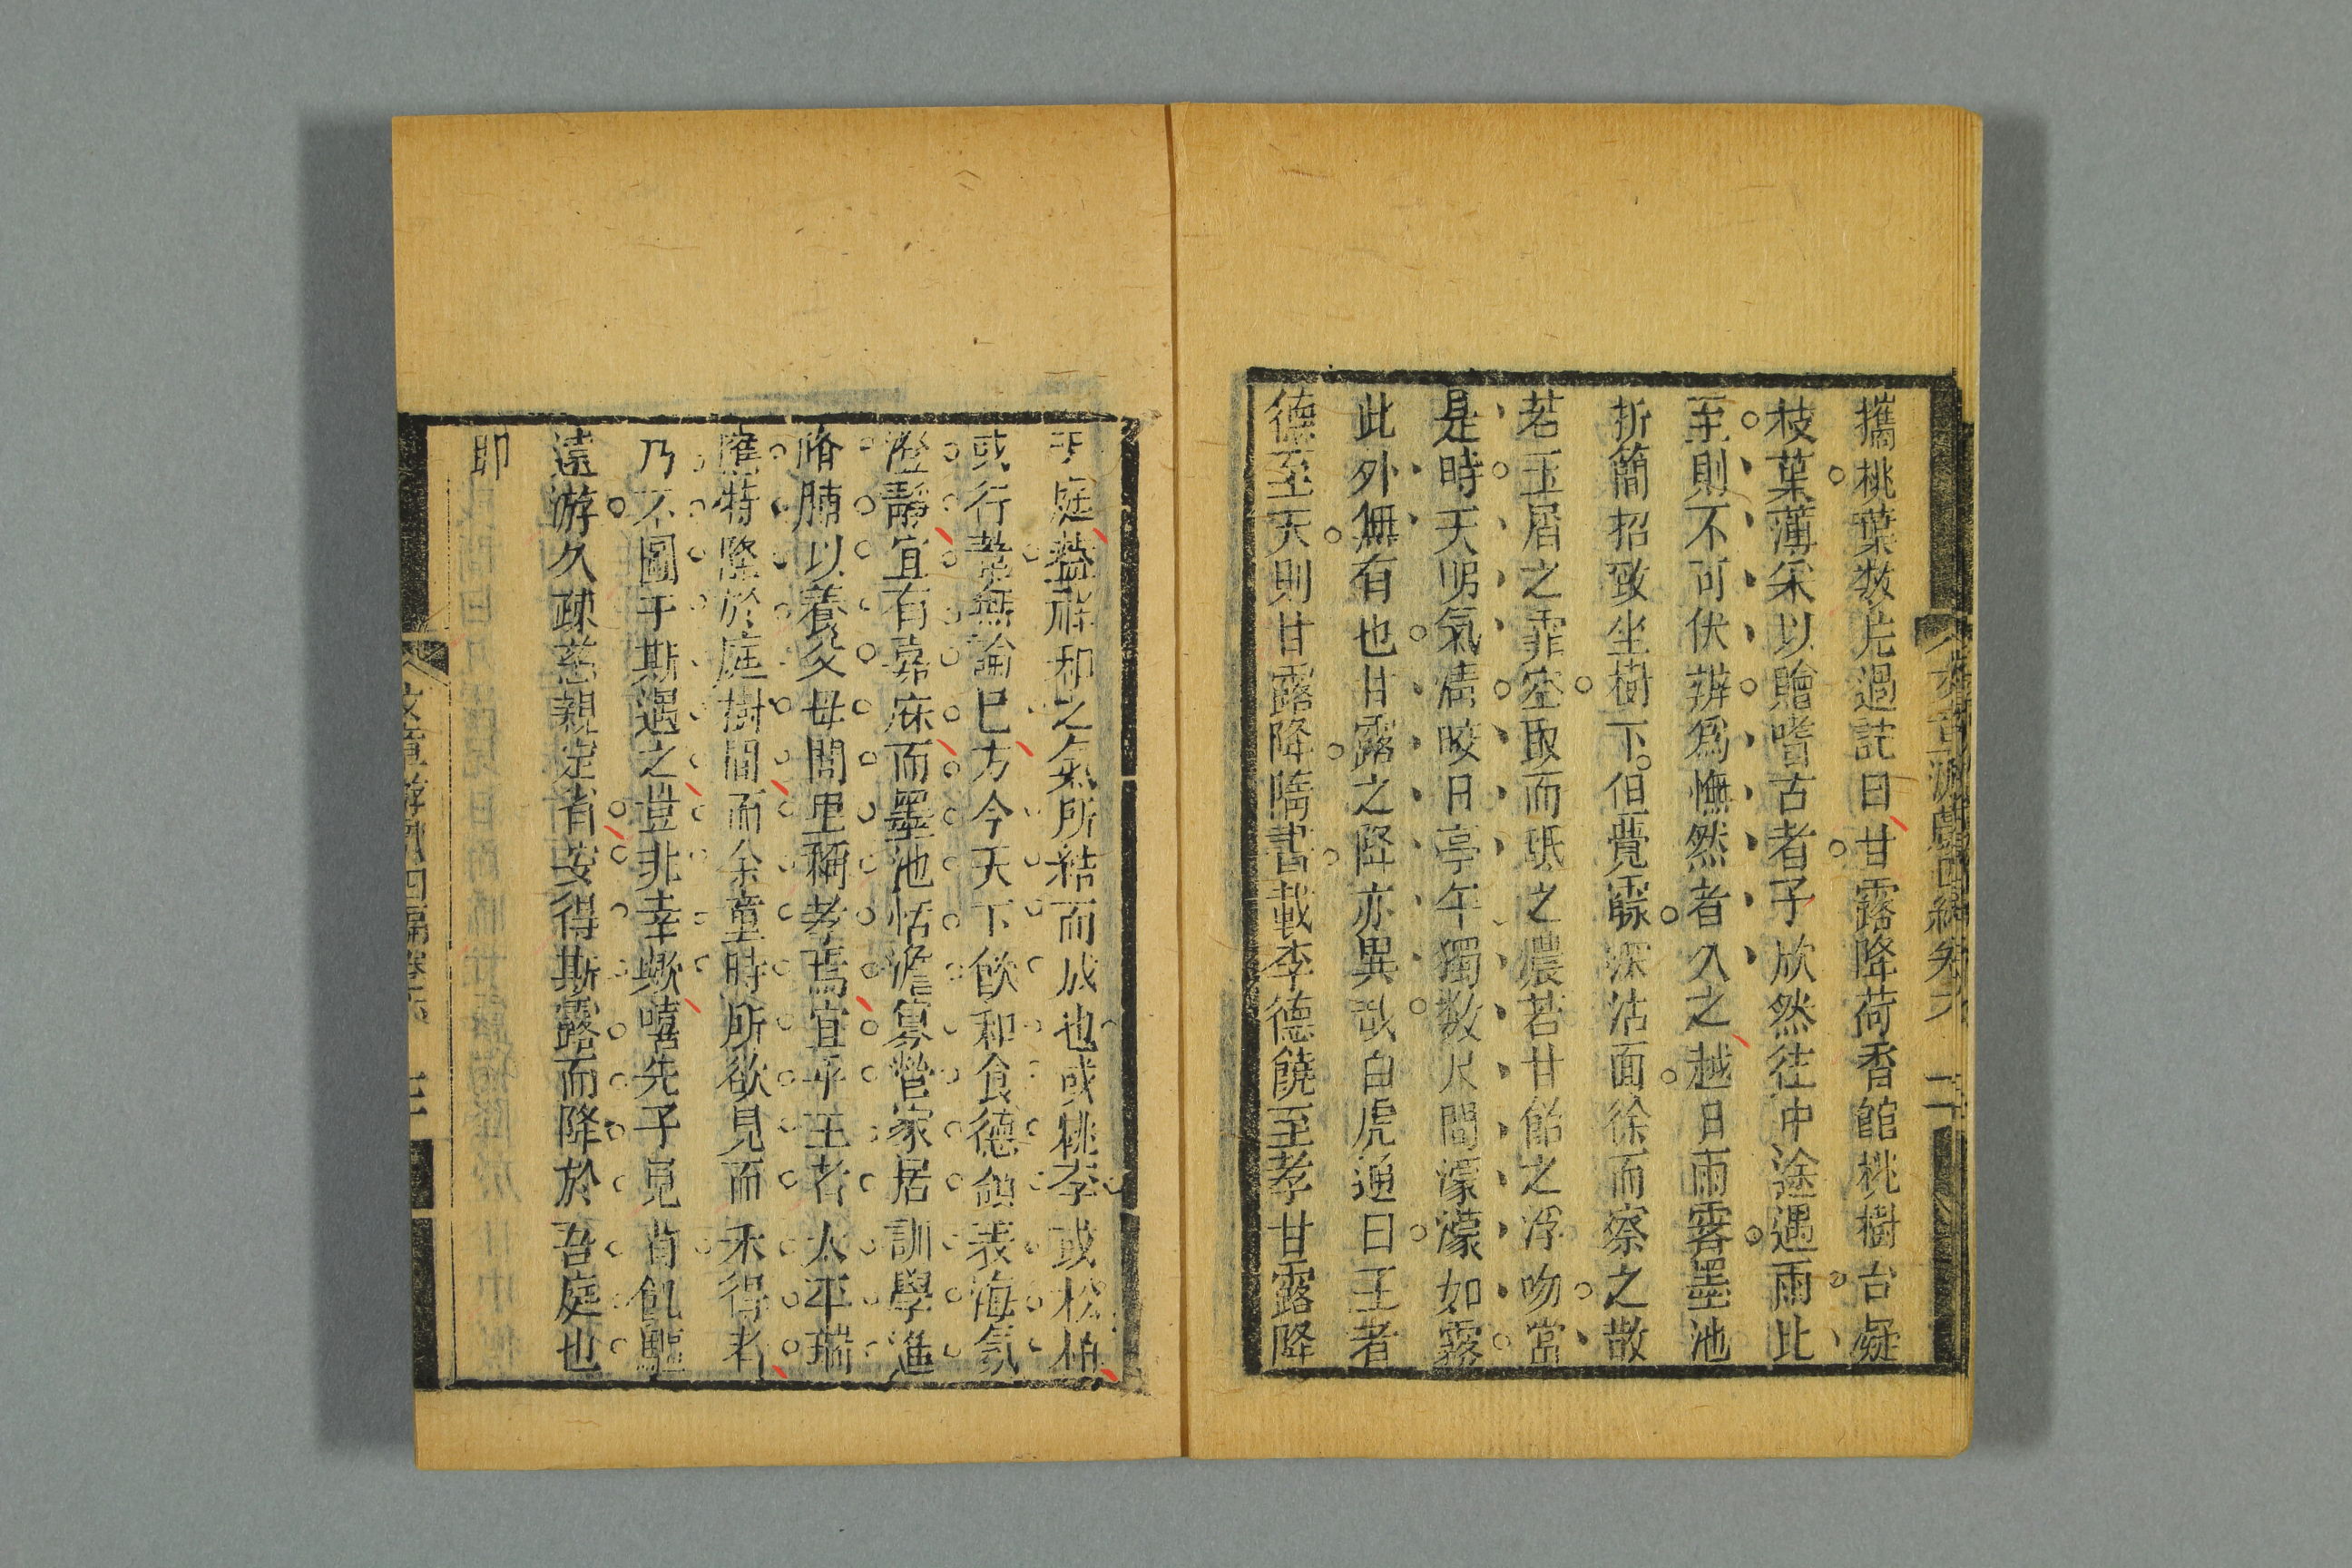 攜桃葉数片過訪曰甘露降荷香館桃樹台凝
枝葉薄采以贈嗜古者子欣然往中途遇雨此
至則不可伏辨爲憮然者久之越日雨霽墨池
折簡招致坐樹下但覺霢深沾面徐而察之散
若玉屑之霏空取而䑛之濃若甘飴之浮吻當
是時天朗氣淸皎日亭午獨数尺間濛濛如霧
此外無有也甘露之降亦異哉白虎通曰王者
德至天則甘露降隋書載李德饒至孝甘露降
于庭葢祥和之氣所結而成也或桃李或松柏
或行葦無論已方今天下飮和食德鏡表海氛
澄靜宜有嘉庥而墨池恬澹寡營家居訓學進
脩脯以養父母閭里稱孝焉宜乎王者太平瑞
應特降於庭樹間而余童時所欲見而未得者
乃不圖于斯遇之豈非幸歟嘻先子見背飢驅
遠游久疎慈親定省安得斯露而降於吾庭也
即
文章游戲四編卷六